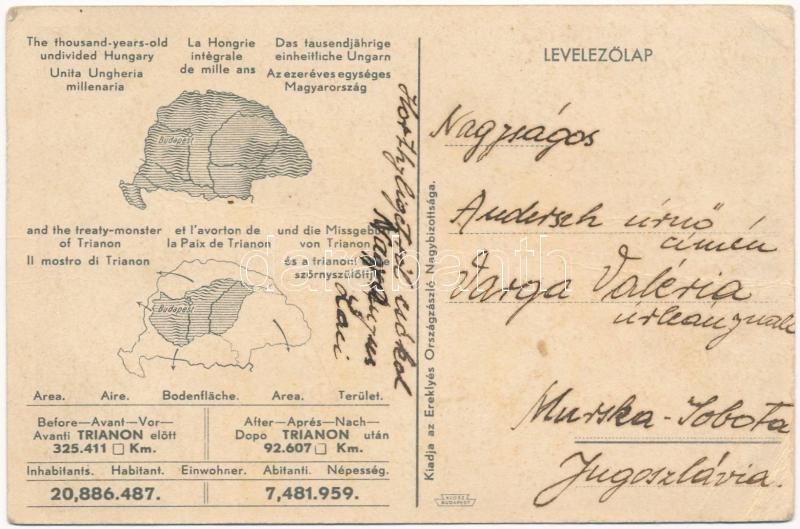 The thousand-years-old
undivided Hungary
Unita Ungheria
millenaria
La Hongrie
intègrale
de mille ans
Das tausendjährige
einheitliche Ungarn
Az ezeréves egységes
Magyarország
Budapest
and the treaty-monster
of Trianon
Il mostro di Trianon
et l'avorton de
la Paix de Trianon
und die Missgeburt
von Trianon
és a trianoni
szörnyszülött
Budapest
Area. Aire. Bodenfläche. Area. Terület.
Before—Avant—Vor—
Avanti TRIANON előtt
325.411 □ Km.
After—Aprés—Nach—
Dopo TRIANON után
92.607 □ Km.
Inhabitants. Habitant. Einwohner. Abitanti. Népesség.
20,886.487. 7,481.959.
Horthyligetről üdvöl
Laci
Kiadja az Ereklyés Országzászló Nagybizottsága.
KLÖSZ
BUDAPEST
LEVELEZŐLAP
Nagyságos
Andersch úrnő
címén
Varga Valéria
úrleánynak
Murska-Sobota
Jugoszlávia.
darabanth